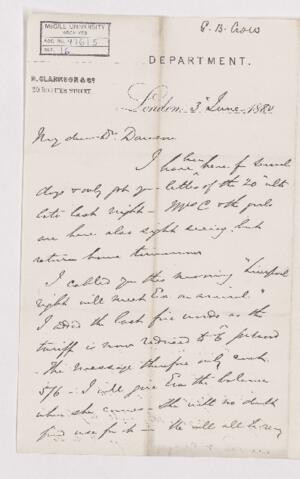 P. B. Cross
McGILL UNIVERSITY
ARCHIVES
ACC. NO.
REF. 16
DEPARTMENT.
R. CLARKSON & Co
London, 3 June 188
My dear Dr Dawson
I have been here for several
days & only got yr letter of the 20th ulto
late last night - Mrs C & the girls
are here also sight seeing but
return home tomorrow
I cabled you this morning "Liverpool
right will meet Eva on arrival."
I added the last five words as the
tariff is now reduced to
- The message therefore only cost
5/6 - I will give Eva the balance
when she comes - She will no doubt
find use for it - We will all be very